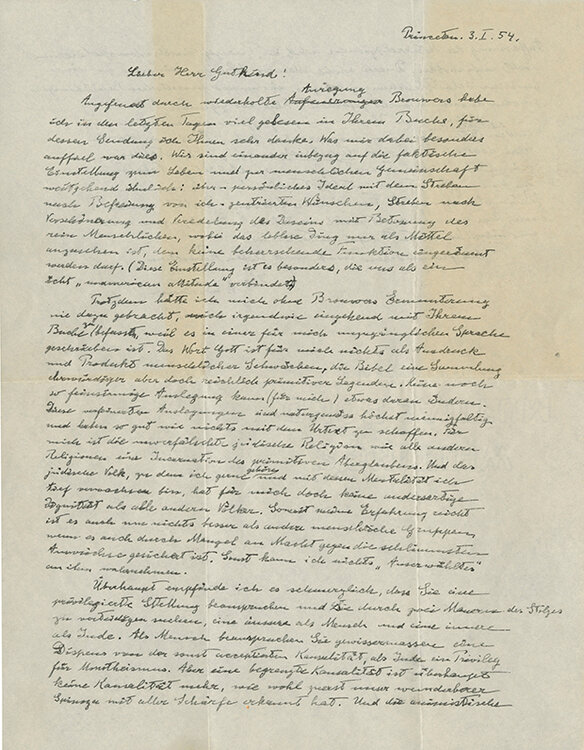 Princeton. 3. I. 54.
Lieber Herr Gutkind!
Angefeuert durch wiederholte Anregung Brouwers habe
ich in den letzten Tagen viel gelesen in Ihrem Buche, für
dessen Sendung ich Ihnen sehr danke. Was mir dabei besonders
auffiel war dies. Wir sind einander inbezug auf die faktische
Einstellung zum Leben und zur menschlichen Gemeinschaft
weitgehend ähnlich: über-persönliches Ideal mit dem Streben
nach Befreiung von ich-zentrierten Wünschen, Streben nach
Verschönerung und Veredelung des Daseins mit Betonung des
rein Menschlichen, wobei das leblose Ding nur als Mittel
anzusehen ist, dem keine beherrschende Funktion eingeräumt
werden darf. (Diese Einstellung ist es besonders, die uns als ein
echt „unamerican attitude" verbindet)
Trotzdem hätte ich mich ohne Brouwers Ermunterung
nie dazu gebracht, mich irgendwie eingehend mit Ihrem
Buche zu befassen, weil es in einer für mich unzugänglichen Sprache
geschrieben ist. Das Wort Gott ist für mich nichts als Ausdruck
und Produkt menschlicher Schwächen, die Bibel eine Sammlung
ehrwürdiger aber doch reichlich primitiver Legenden. Keine noch
so feinsinnige Auslegung kann (für mich) etwas daran ändern.
Diese verfeinerten Auslegungen sind naturgemäss höchst mannigfaltig
und haben so gut wie nichts mit dem Urtext zu schaffen. Für
mich ist die unverfälschte jüdische Religion wie alle anderen
Religionen eine Incarnation des primitiven Aberglaubens. Und das
jüdische Volk, zu dem ich gerne gehöre und mit dessen Mentalität ich
tief verwachsen bin, hat für mich doch keine andersartige
Dignität als alle anderen Völker. Soweit meine Erfahrung reicht
ist es auch um nichts besser als andere menschliche Gruppen,
wenn es auch durch Mangel an Macht gegen die schlimmsten
Auswüchse gesichert ist. Sonst kann ich nichts „Auserwähltes"
an ihm wahrnehmen.
Überhaupt empfinde ich es schmerzlich, dass Sie eine
privilegierte Stellung beanspruchen und sie durch zwei Mauern des Stolzes
zu verteidigen suchen, eine äussere als Mensch und eine innere
als Jude. Als Mensch beanspruchen Sie gewissermassen einen
Dispens von der sonst acceptierten Kausalität, als Jude ein Privileg
für Monotheismus. Aber eine begrenzte Kausalität ist überhaupt
keine Kausalität mehr, wie wohl zuerst unser wunderbarer
Spinoza mit aller Schärfe erkannt hat. Und die animistische